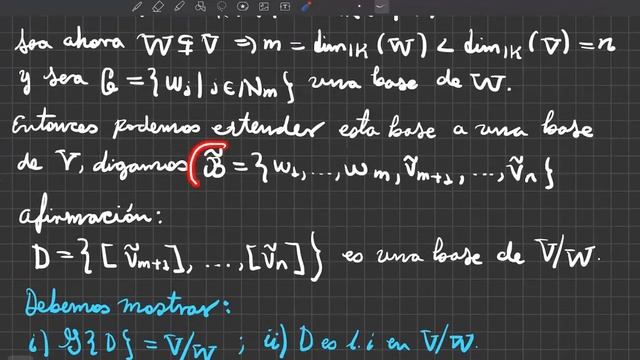 Sea ahora W ⊊ V ⇒ m = dim_IK (W) < dim_IK (V) = n
y sea C = {w_j | j ∈ IN_m} una base de W.
Entonces podemos extender esta base a una base
de V, digamos B̃ = {w_1, ..., w_m, ṽ_{m+1}, ..., ṽ_n}
afirmación:
D = {[ṽ_{m+1}], ..., [ṽ_n]} es una base de V/W.
Debemos mostrar:
i) G{D} = V/W ; ii) D es l.i en V/W.